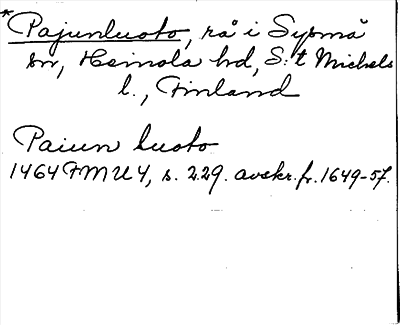 *Pajunluoto, rå i Sysmä
sn, Heinola hd, S:t Michels
l., Finland
Paiun luoto
1464 FMU 4, s. 229. avskr. fr. 1649-57.